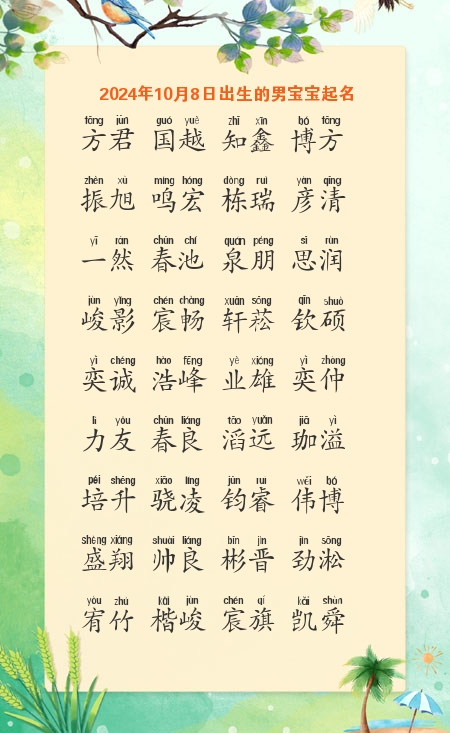 2024年10月8日出生的男宝宝起名
fāng jūn guó yuè zhī xīn bó fāng
方君 国越 知鑫 博方
zhèn xù míng hóng dòng ruì yàn qīng
振旭 鸣宏 栋瑞 彦清
yī rán chūn chí quán péng sī rùn
一然 春池 泉朋 思润
jùn yǐng chén chàng xuān sōng qīn shuò
峻影 宸畅 轩菘 钦硕
yì chéng hào fēng yè xióng yì zhòng
奕诚 浩峰 业雄 奕仲
lì yǒu chūn liáng tāo yuǎn jiā yì
力友 春良 滔远 珈溢
péi shēng xiāo líng jūn ruì wěi bó
培升 骁凌 钧睿 伟博
shèng xiáng shuài liáng bīn jìn jìn sōng
盛翔 帅良 彬晋 劲淞
yòu zhú kǎi jùn chén qí kǎi shùn
宥竹 楷峻 宸旗 凯舜